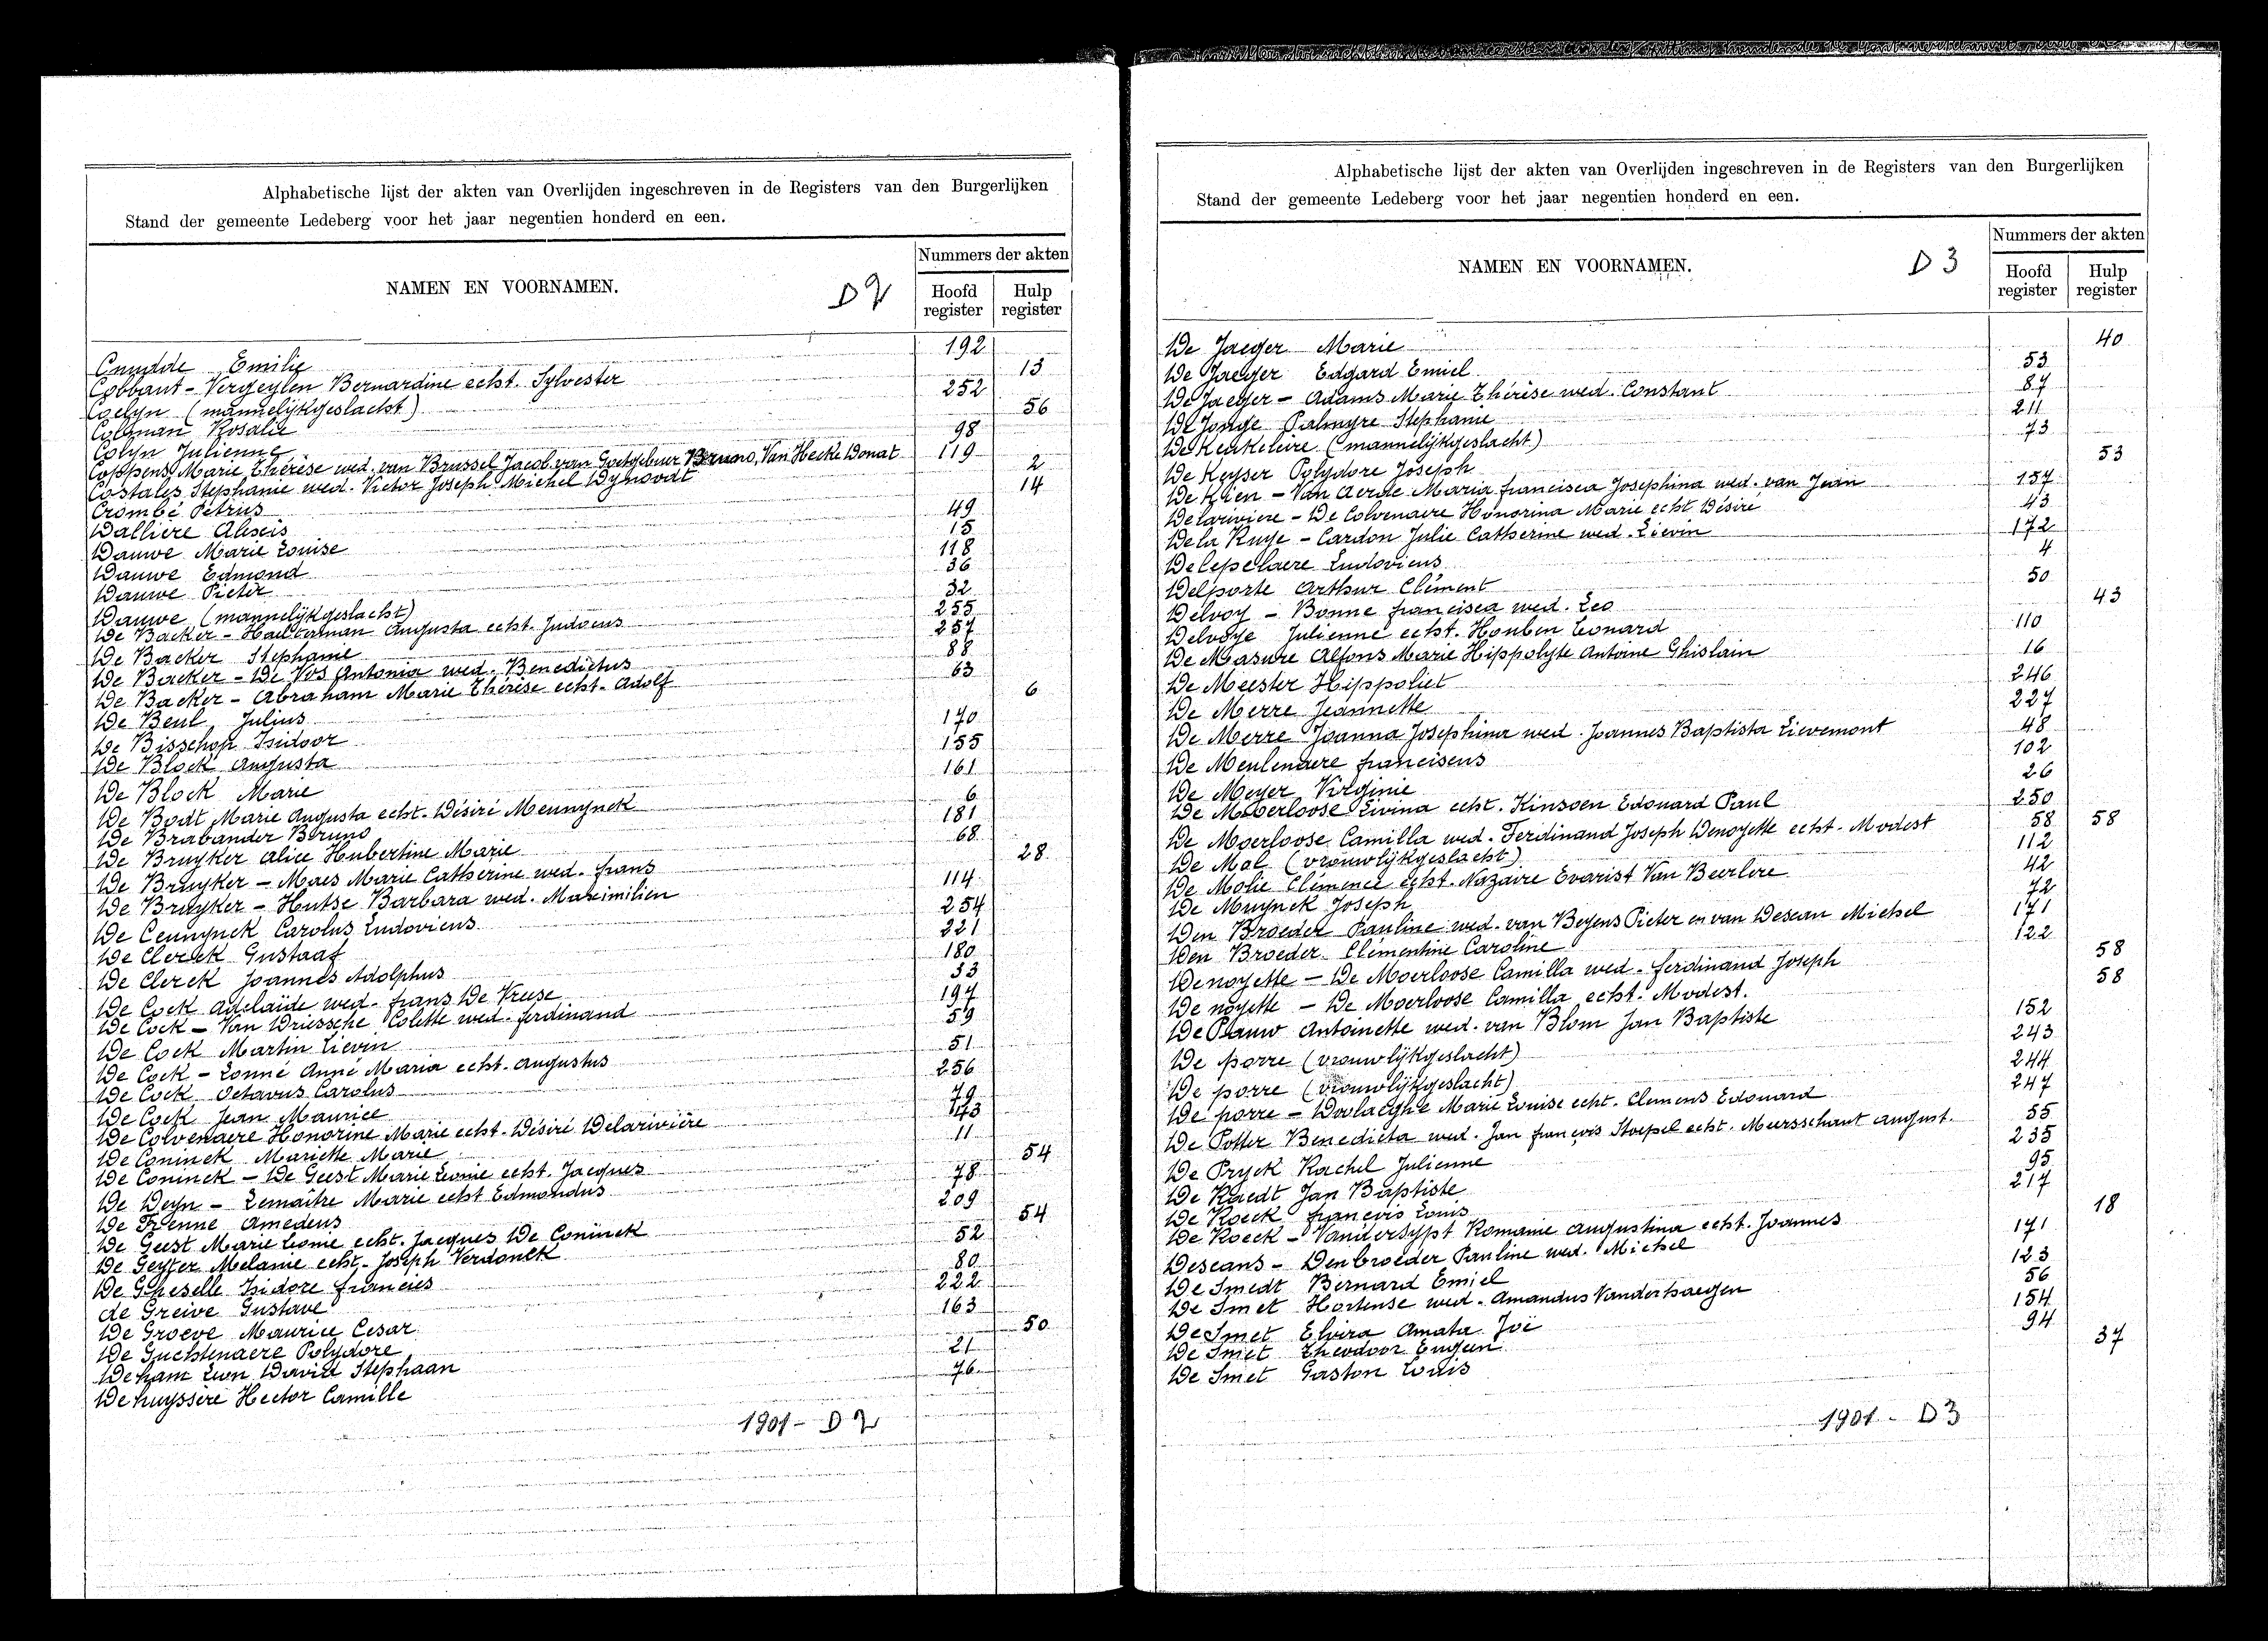 Alphabetische lijst der akten van Overlijden ingeschreven in de Registers van den Burgerlijken
Stand der gemeente Ledeberg voor het jaar negentien honderd en een.
NAMEN EN VOORNAMEN.
D 2
Nummers der akten
Hoofd register
Hulp register
Cnudde Emilie 192
Cobbaut - Vergeylen Bernardine echt. Sylvester 13
Coelyn (mannelijkgeslacht) 252
Colman Rosalie 56
Colyn Julienne 98
Coppens Marie Thérèse wed. van Brussel Jacob van Goetgebuer Bruno, Van Hecke Donat 119
Costales Stephanie wed. Victor Joseph Michel Dynoodt 2
Crombé Petrus 14
Dallière Alexis 49
Dauwe Marie Louise 15
Dauwe Edmond 118
Dauwe Pieter 36
Dauwe (mannelijkgeslacht) 32
De Backer - Hauterman Augusta echt. Judocus 255
De Backer Stephanie 257
De Backer - De Vos Antonia wed. Benedictus 88
De Backer - Abraham Marie Thérèse echt. Adolf 63
De Beul Julius 6
De Bisschop Isidoor 170
De Block Augusta 155
De Block Marie 161
De Bodt Marie Augusta echt. Désiré Meunynck 6
De Brabander Bruno 181
De Bruyker Alice Hubertine Marie 68
De Bruyker - Maes Marie Catherine wed. frans 28
De Bruyker - Hutse Barbara wed. Maximilien 114
De Ceunynck Carolus Ludovicus 254
De Clerck Gustaaf 221
De Clerck Joannes Adolphus 180
De Cock Adelaïde wed. frans De Vreese 33
De Cock - Van Driessche Colette wed. ferdinand 197
De Cock Martin Lievin 59
De Cock - Lonné Anné Maria echt. Augustus 51
De Cock Octavus Carolus 256
De Cock Jean Maurice 79
De Colvenaere Honorine Marie echt. Désiré Delarivière 43
De Coninck Mariette Marie 11
De Coninck - De Geest Marie Leonie echt. Jacques 54
De Deyn - Lemaître Marie echt Edmondus 78
De Frenne Amedeus 209
De Geest Marie Leonie echt. Jacques De Coninck 54
De Geyter Melanie echt. Joseph Verdonck 52
De Gheselle Isidore francies 80
de Greive Gustave 222
De Groeve Maurice Cesar 163
De Guchtenaere Polydore 50
Deham Leon David Stephaan 21
Dehuyssere Hector Camille 76
1901 - D 2
Alphabetische lijst der akten van Overlijden ingeschreven in de Registers van den Burgerlijken
Stand der gemeente Ledeberg voor het jaar negentien honderd en een.
NAMEN EN VOORNAMEN.
D 3
Nummers der akten
Hoofd register
Hulp register
De Jaeger Marie 40
De Jaeger Edgard Emiel 53
De Jaeger - Adams Marie Thérèse wed. Constant 87
De Jonge Palmyre Stephanie 211
De Keukeleire (mannelijkgeslacht) 73
De Keyser Polydore Joseph 53
De Klien - Van Aerde Maria francisca Josephina wed. van Jean 157
Delariviere - De Colvenaere Honorina Marie echt Désiré 43
Dela Ruye - Cardon Julie Catherine wed. Lievin 172
Delepelaere Ludovicus 4
Delporte Arthur Clément 50
Delvoy - Bonne francisca wed. Leo 43
Delvoye Julienne echt. Houben Leonard 110
De Masure Alfons Marie Hippolyte Antoine Ghislain 16
De Meester Hippoliet 246
De Merre Jeannette 227
De Merre Joanna Josephina wed. Joannes Baptista Lievemont 48
De Meulenaere franciscus 102
De Meyer Virginie 26
De Moerloose Livina echt. Kinsoen Edouard Paul 250
De Moerloose Camilla wed. Ferdinand Joseph Denoyette echt. Modest 58 58
De Mol (vrouwlijkgeslacht) 112
De Molie Clémence echt. Nazaire Evarist Van Beerlere 42
De Muynck Joseph 72
Den Broeder Pauline wed. van Beyens Pieter en van Descan Michel 171
Den Broeder Clémentine Caroline 122
Denoyette - De Moerloose Camilla wed. ferdinand Joseph 58
De noyette - De Moerloose Camilla echt. Modest. 58
De Pauw Antoinette wed. van Blom Jan Baptiste 152
De porre (vrouwlijkgeslacht) 243
De porre (vrouwlijkgeslacht) 244
De porre - Doolaeghe Marie Louise echt. Clemens Edouard 247
De Potter Benedicta wed. Jan françois Stoepel echt. Mursschaut August. 55
De Pryck Rachel Julienne 235
De Raedt Jan Baptiste 95
De Roeck françois Louis 217
De Roeck - Vandersypt Romanie Augustina echt. Joannes 18
Descans - Denbroeder Pauline wed. Michel 171
De Smedt Bernard Emiel 123
De Smet Hortense wed. Amandus Vanderhaegen 56
De Smet Elvira Amata Joé 154
De Smet Theodoor Eugeen 94
De Smet Gaston Louis 37
1901 - D 3